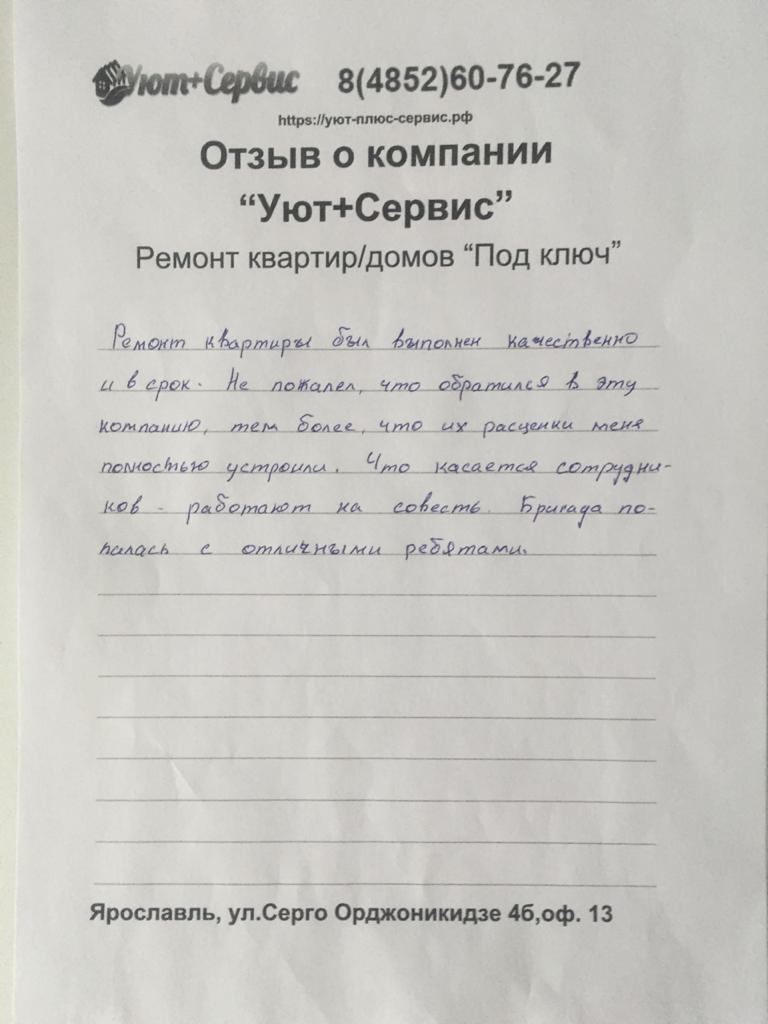 Уют+Сервис 8(4852)60-76-27
https://уют-плюс-сервис.рф
Отзыв о компании
“Уют+Сервис”
Ремонт квартир/домов “Под ключ”
Ремонт квартиры был выполнен качественно
и в срок. Не пожалел, что обратился в эту
компанию, тем более, что их расценки меня
полностью устроили. Что касается сотрудни-
ков - работают на совесть. Бригада по-
палась с отличными ребятами.
Ярославль, ул.Серго Орджоникидзе 4б,оф. 13